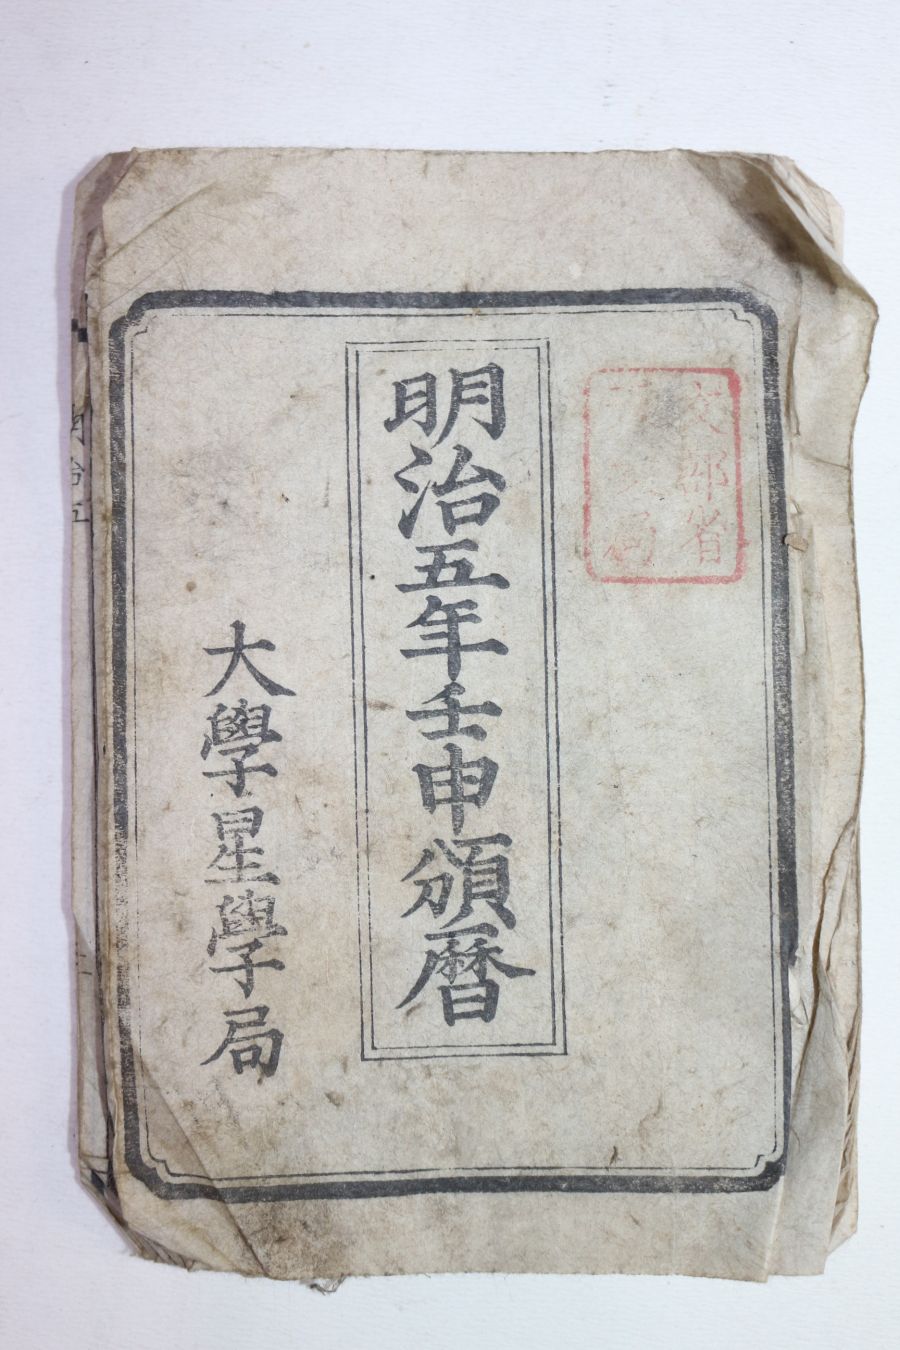 文部省
局
明治五年壬申頒暦
大學星學局
明治五